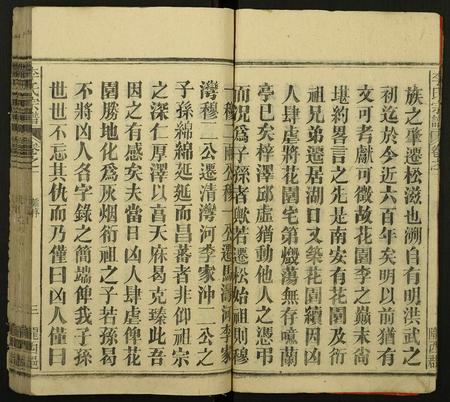 族之肇遷松滋也溯自有明洪武之
初迄於今近六百年矣明以前猶有
文可者獻可徵故花園李之蟲未尚
堪約畧言之先是南安有花園及衍
祖兄弟遷居湖口又築花園續因凶
人肆虐將花園宅第燬蕩無存噫蘭
亭已矣梓澤邱虛猶動他人之憑弔
而況爲子孫者歟若遷松始祖則穆
一穆二兩公穆一公遷馬灣河李家
灣穆二公遷清灣河李家沖二公之
子孫綿綿延延而昌蕃者非仰祖宗
之深仁厚澤以叨天庥曷克臻此吾
因之有感矣夫當日凶人肆虐俾花
園勝地化爲灰烟衍祖之子若孫曷
不將凶人名字錄之簡端俾我子孫
世世不忘其仇而乃僅曰凶人僅曰
李氏宗譜
卷之一
三
隴西郡